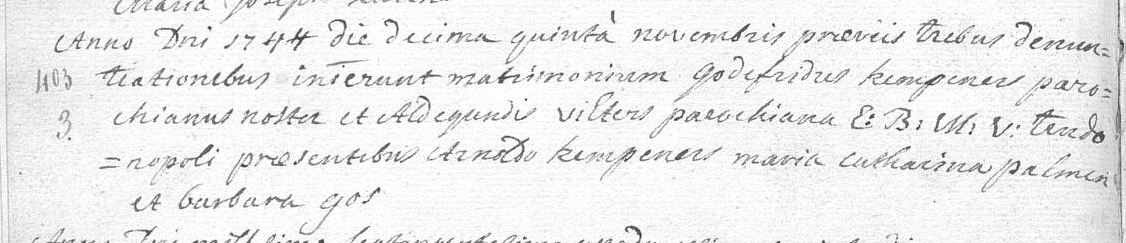 Maria Joseph
Anno Dni 1744 die decima quinta novembris præviis tribus denun=
403 tiationibus inierunt matrimonium godefridus kempeners paro=
3. chianus noster et Aldegundis vilters parochiana E: B: M: V: trudo
=nopoli præsentibus Arnoldo kempeners maria catharina palmen
et barbara gos
Anno Dni